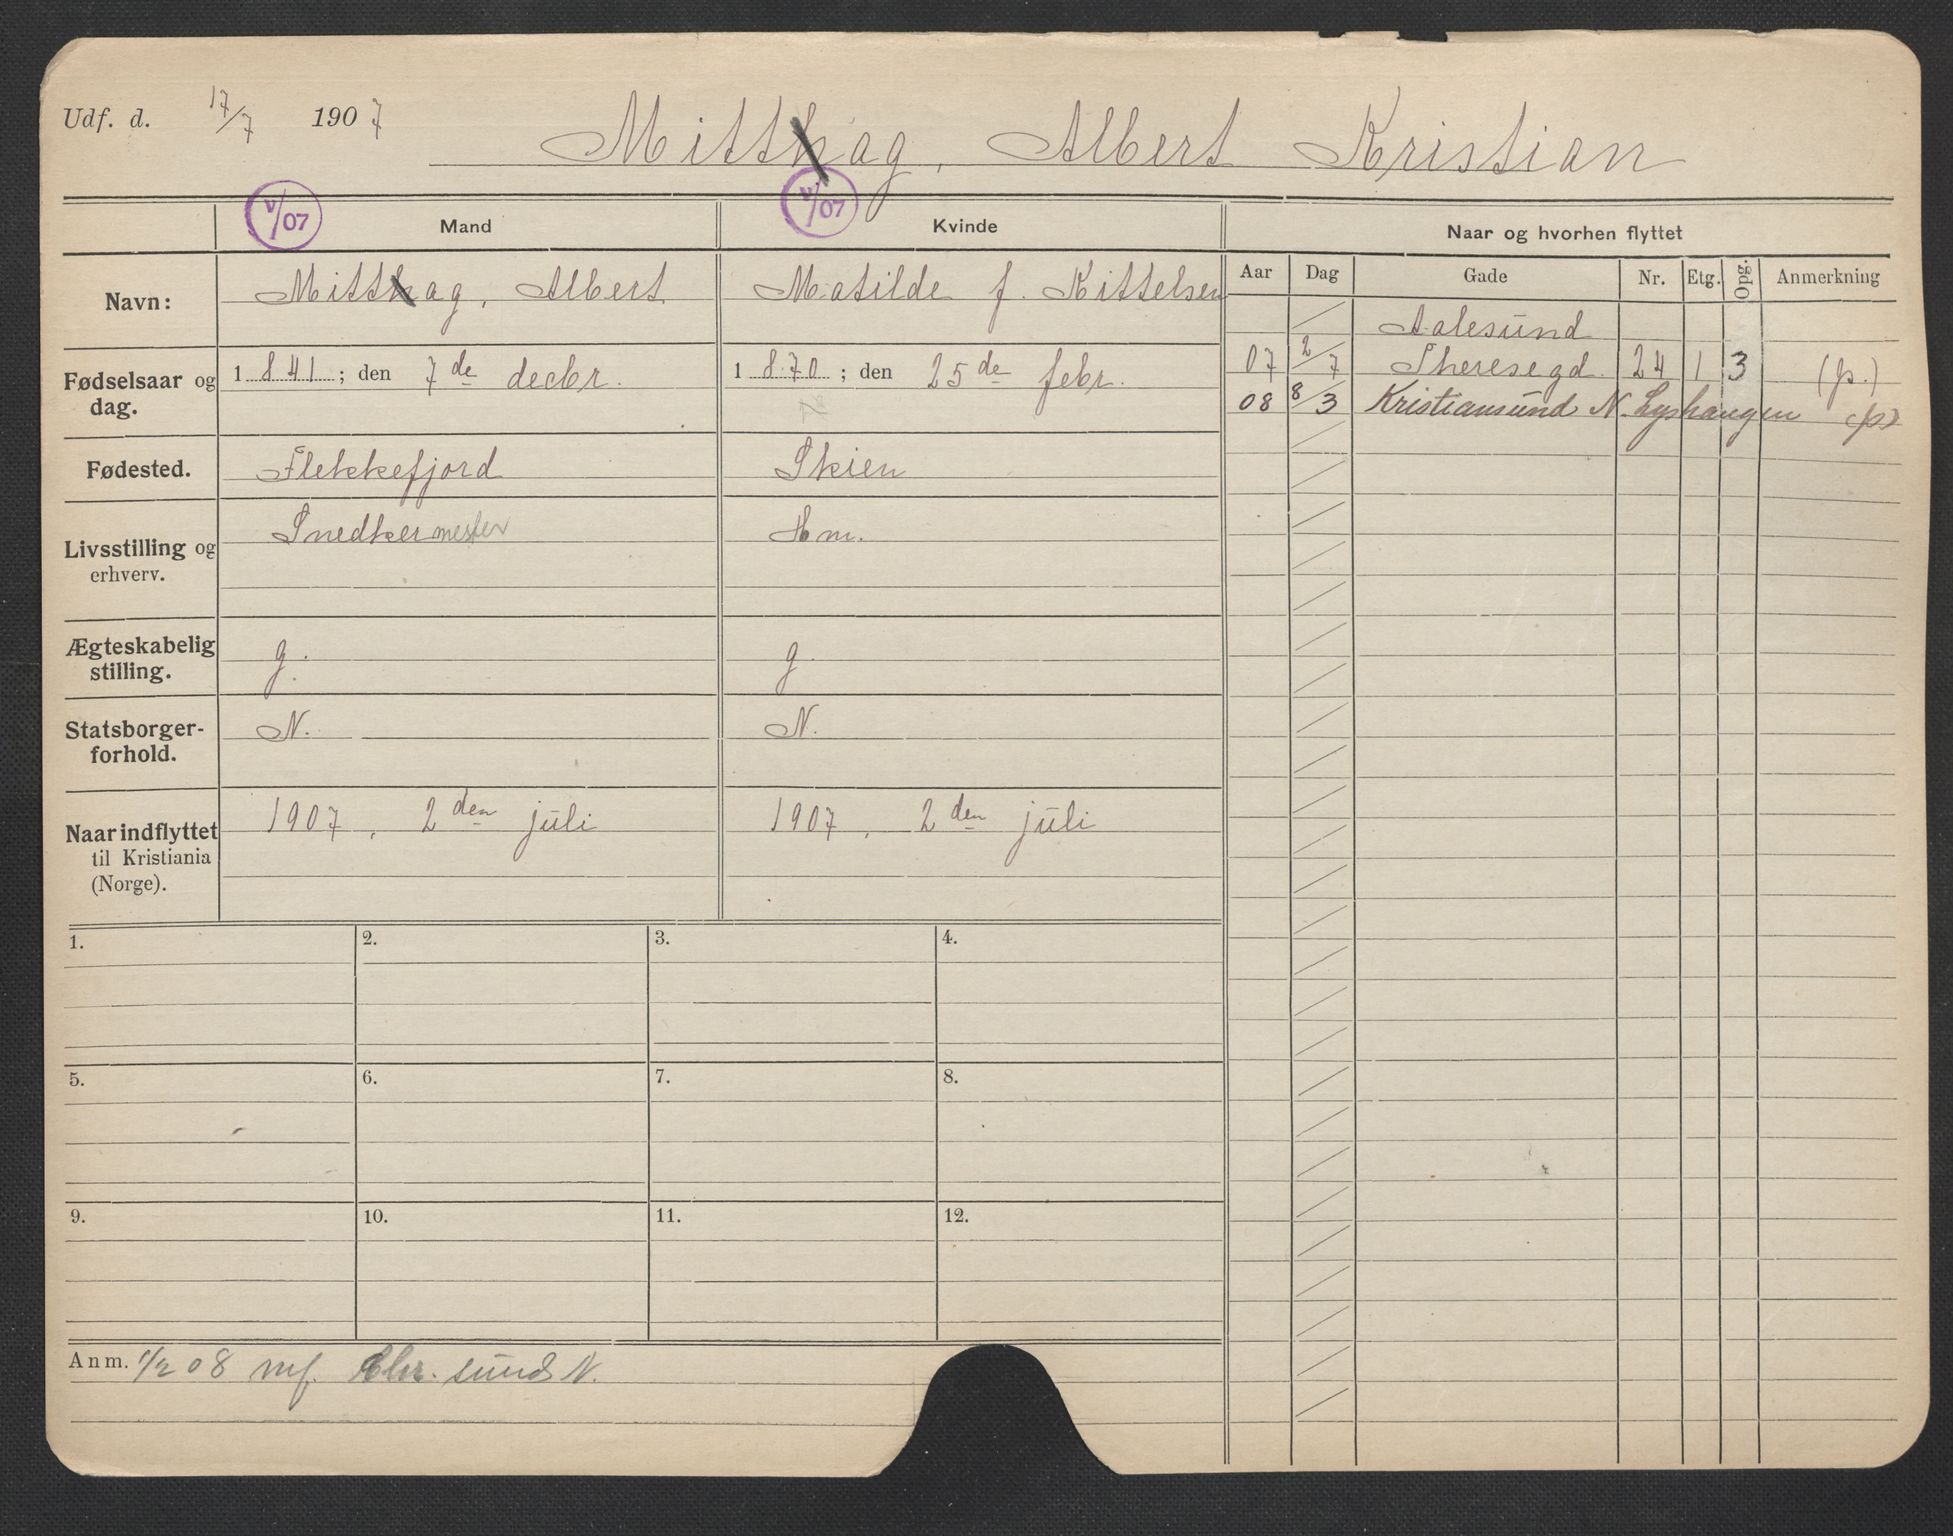 Udf. d. 17/7 1907
Mitthag, Albert Kristian
V/07 Mand V/07 Kvinde
Naar og hvorhen flyttet
Navn: Mitthag, Albert Matilde f. Kittelsen
Aar Dag Gade Nr. Etg. Opg. Anmerkning
Aalesund
07 2/7 Theresegd. 24 1 3 (fr.)
08 8/3 Kristiansund N. Lyshaugen
Fødselsaar og dag. 1841; den 7de decbr. 1870; den 25de febr.
Fødested. Flekkefjord Skien
Livsstilling og erhverv. Snedkermester Hm.
Ægteskabelig stilling. g. g
Statsborger-
forhold. N. N.
Naar indflyttet 1907, 2den juli 1907, 2den juli
til Kristiania
(Norge).
1. 2. 3. 4.
5. 6. 7. 8.
9. 10. 11. 12.
Anm. 1/2 08 mf. Chr.sund N.